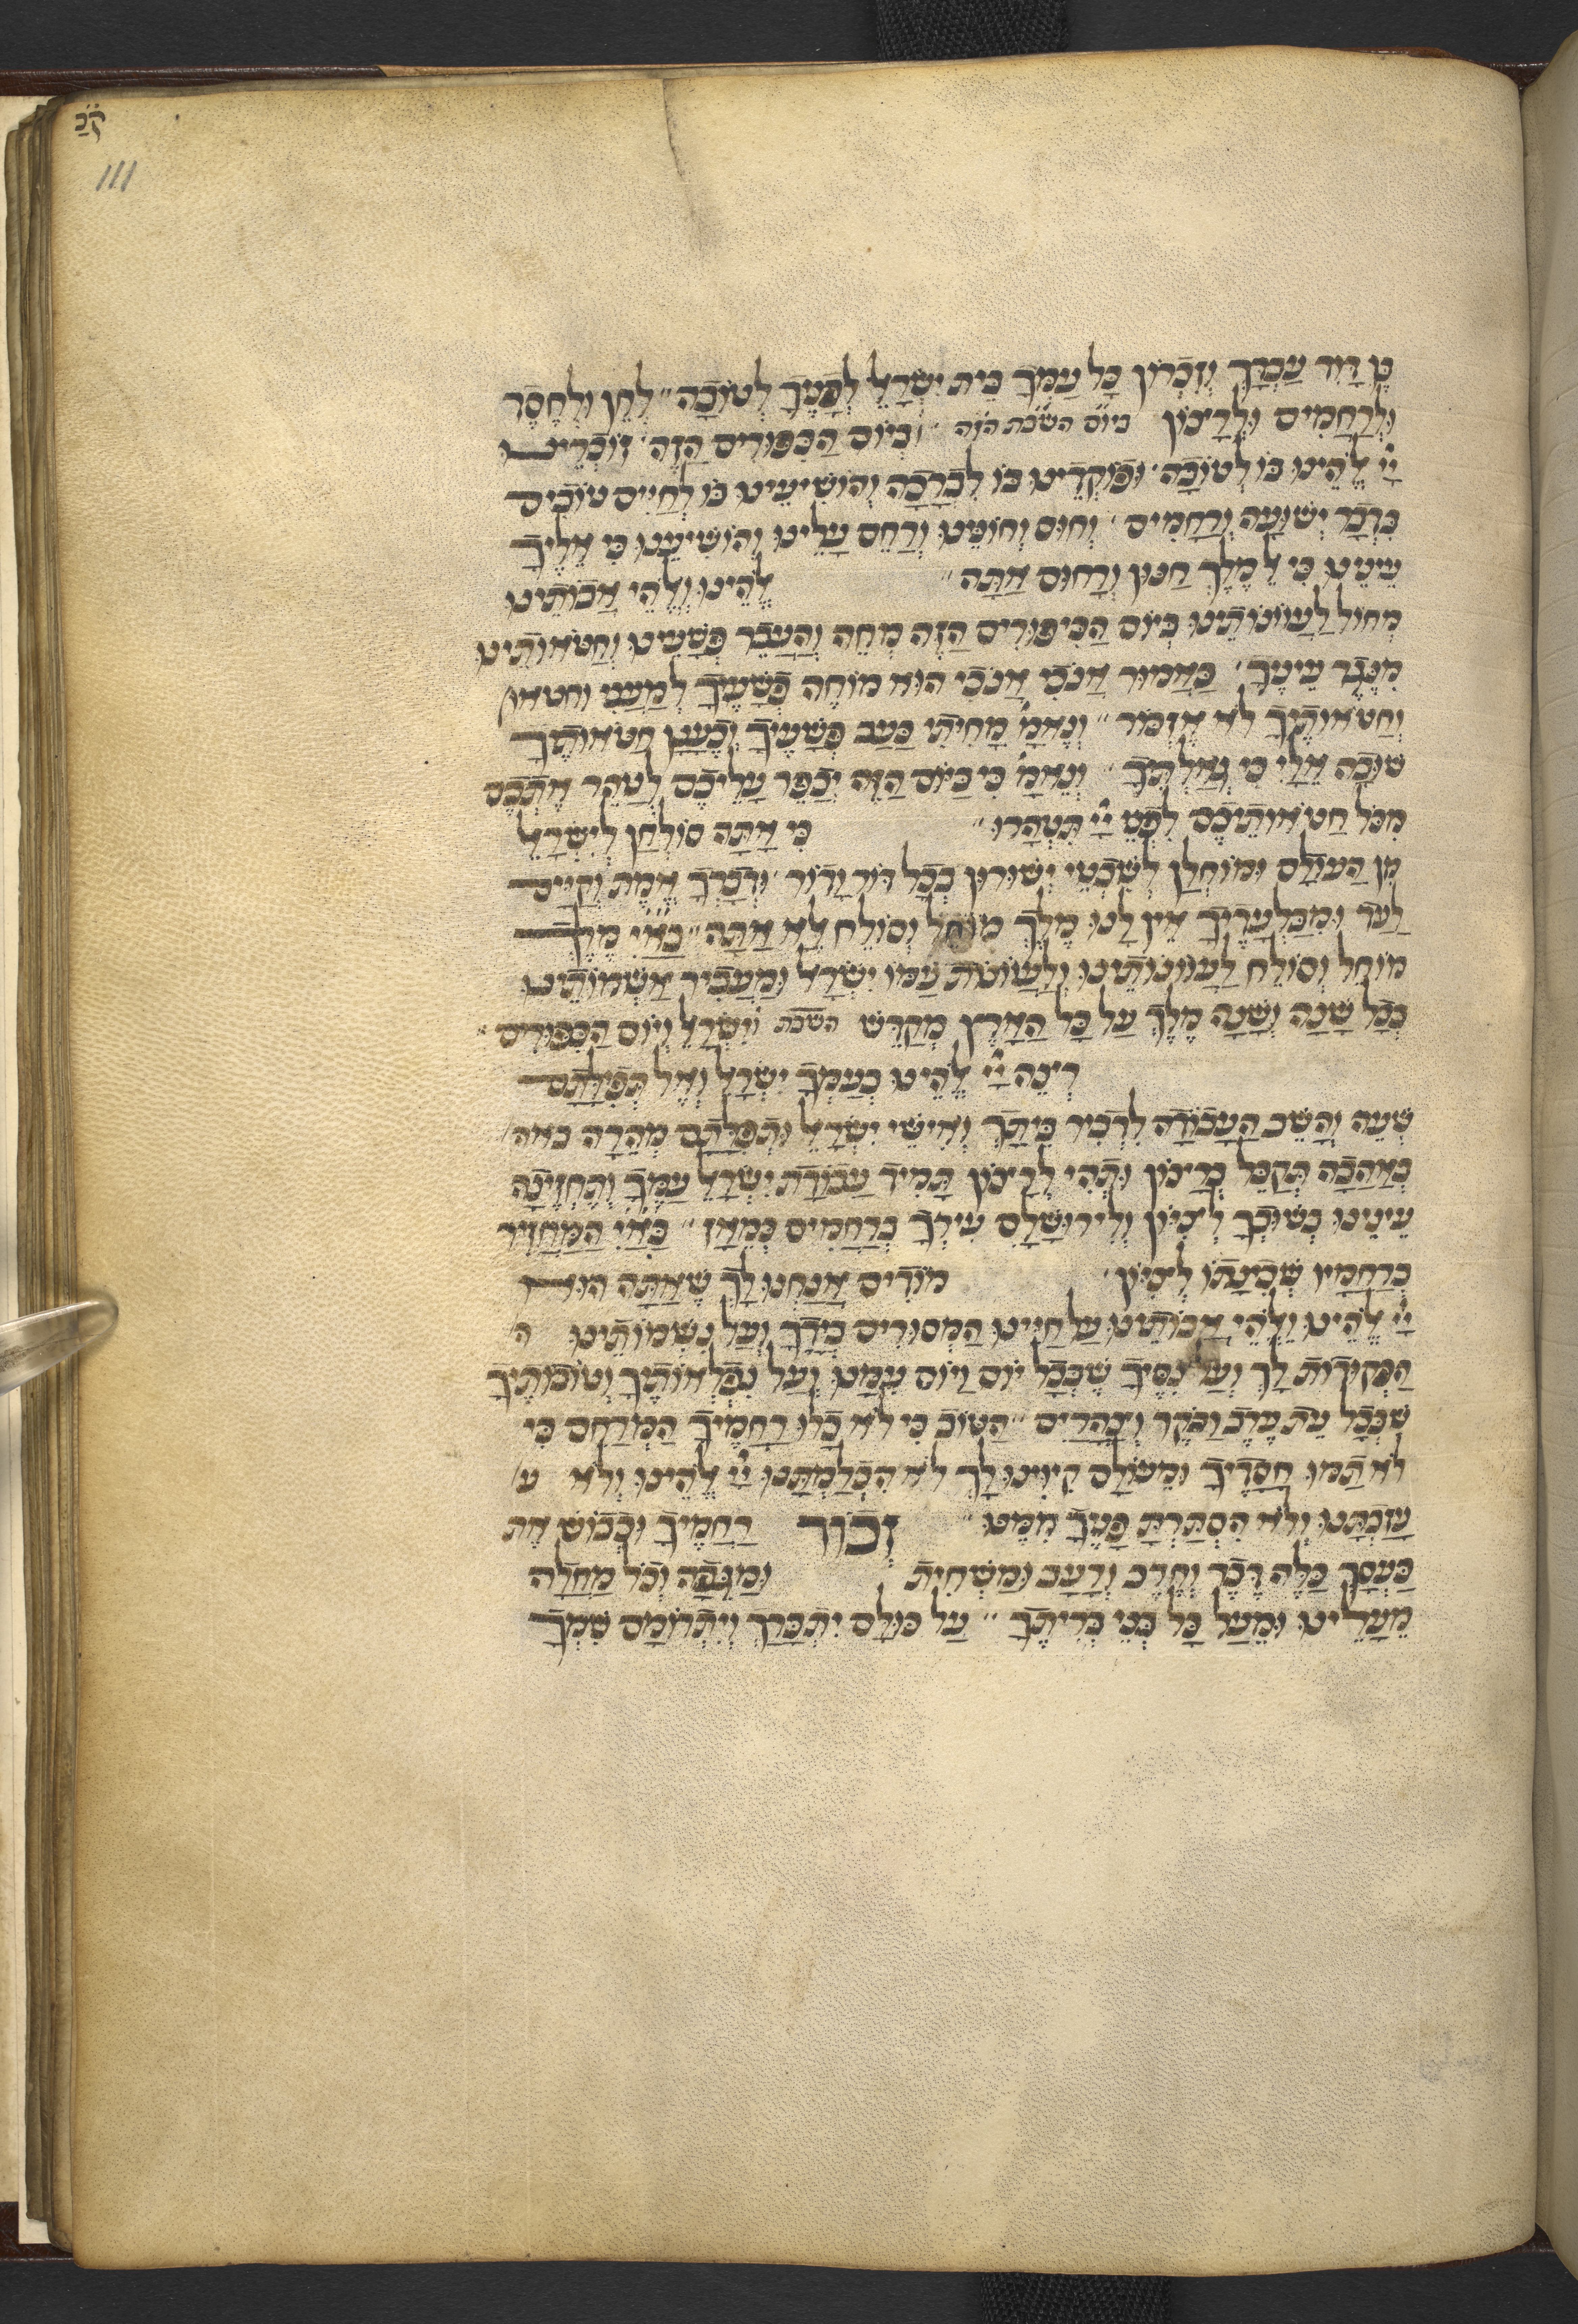 ק̇כ̇
111
בֶּן דָּוִד עַבְדָּךְ וְזִכְרוֹן כָּל עַמְּךָ בֵּית יִשְׂרָאֵל לְפָנֶיךָ לְטוֹבָה״ לְחֵן וּלְחֶסֶד
וּלְרַחֲמִים וּלְרָצוֹן ביום השבת הזה וּבְיוֹם הַכִּפּוּרִים הַזֶּה׳ זוֹכְרֵינוּ
יְיָ אֱלֹהֵינוּ בּוֹ לְטוֹבָה׳ וּפוֹקְדֵינוּ בּוֹ לִבְרָכָה וְהוֹשִׁיעֵינוּ בּוֹ לְחַיִּים טוֹבִים
בִּדְבַר יְשׁוּעָה וְרַחֲמִים׳ וְחוּס וְחוֹנֵּנוּ וְרַחֵם עָלֵינוּ וְהוֹשִׁיעֵנוּ כִּי אֵלֶיךָ
עֵינֵינוּ כִּי אֵל מֶלֶךְ חַנּוּן וְרַחוּם אַתָּה״ אֱלֹהֵינוּ וֵאלֹהֵי אֲבוֹתֵינוּ
מְחוֹל לַעֲוֹונוֹתֵינוּ בְּיוֹם הַכִּיפּוּרִים הַזֶּה מְחֵה וְהַעֲבֵר פְּשָׁעֵינוּ וְחַטֹּאותֵינוּ
מִנֶּגֶד עֵינֶיךָ׳ כָּאָמוּר אָנֹכִי אָנֹכִי הוּא מוֹחֶה פְשָׁעֶיךָ לְמַעֲנִי וחטאו
וְחַטֹּאותֶיךָ לֹא אֶזְכּוֹר״ וְנֶאֱמַ׳ מָחִיתִי כָעָב פְּשָׁעֶיךָ וְכֶעָנָן חַטֹּאותֶיךָ
שׁוּבָה אֵלַי כִּי גְאַלְתִּיךָ״ וְנֶאֱמַ׳ כִּי בַיּוֹם הַזֶּה יְכַפֵּר עֲלֵיכֶם לְטַהֵר אֶתְכֶם
מִכֹּל חַטֹּאותֵיכֶם לִפְנֵי יְיָ תִּטְהָרוּ״ כִּי אַתָּה סוֹלְחָן לְיִשְׂרָאֵל
מִן הָעוֹלָם וּמוֹחְלָן לְשִׁבְטֵי יְשׁוּרוּן בְּכָל דּוֹר וָדוֹר׳ וּדְבָרְךָ אֱמֶת וְקַיָּים
לָעַד וּמִבַּלְעָדֶיךָ אֵין לָנוּ מֶלֶךְ מוֹחֵל וְסוֹלֵחַ אֶלָּא אַתָּה״ בָּאַ״יְ מֶלֶךְ
מוֹחֵל וְסוֹלֵחַ לַעֲוֹונוֹתֵינוּ וְלַעֲוֹונוֹת עַמּוֹ יִשְׂרָאֵל וּמַעֲבִיר אַשְׁמוֹתֵינוּ
בְּכָל שָׁנָה וְשָׁנָה מֶלֶךְ עַל כָּל הָאָרֶץ מְקַדֵּשׁ השבת וְיִשְׂרָאֵל וְיוֹם הַכִּפּוּרִים״
רְצֵה יְיָ אֱלֹהֵינוּ בְעַמְּךָ יִשְׂרָאֵל וְאֶל תְּפִלָּתָם
שְׁעֵה וְהָשֵׁב הָעֲבוֹדָה לִדְבִיר בֵּיתָךְ וְאִישֵׁי יִשְׂרָאֵל וּתְפִלָּתָם מְהֵרָה באה
בְאַהֲבָה תְּקַבֵּל בְּרָצוֹן וּתְהִי לְרָצוֹן תָּמִיד עֲבוֹדַת יִשְׂרָאֵל עַמֶּךָ וְתֶחֱזֶינָה
עֵינֵינוּ בְּשׁוּבְךָ לְצִיּוֹן וְלִירוּשָׁלַם עִירְךָ בְּרַחֲמִים כְּמֵאָז״ בָּאַ״יְ הַמַּחֲזִיר
בְרַחֲמָיו שְׁכִינָתוֹ לְצִיּוֹן׳ מוֹדִים אֲנַחְנוּ לָךְ שָׁאַתָּה הוּא
יְיָ אֱלֹהֵינוּ וֵאלֹהֵי אֲבוֹתֵינוּ עַל חַיֵּינוּ הַמְּסוּרִים בְּיָדֶךָ וְעַל נִשְׁמוֹתֵינוּ ה
הַפְּקוּדוֹת לָךְ וְעַל נִסֶּיךָ שֶׁבְּכָל יוֹם וָיוֹם עִמָּנוּ וְעַל נִפְלְאוֹתֶיךָ וְטוֹבוֹתֶיךָ
שֶׁבְּכָל עֵת עֶרֶב וָבֹקֶר וְצָהֳרַיִם״ הַטּוֹב כִּי לֹא כָלוּ רַחֲמֶיךָ הַמְרַחֵם כִּי
לֹא תַמּוּ חֲסָדֶיךָ וּמֵעוֹלָם קִיוִּינוּ לָךְ לֹא הִכְלַמְתָּנוּ יְיָ אֱלֹהֵינוּ וְלֹא ע
עֲזַבְתָּנוּ וְלֹא הִסְתַּרְתָּ פָּנֶיךָ מִמֶּנּוּ״ זְכוֹר רַחֲמֶיךָ וּכְבוֹשׁ אֶת
כַּעַסְךָ כַּלֵּה דֶבֶר וְחֶרֶב וְרָעָב וּמַשְׁחִית וּמַגֵּפָה וְכֹל מַחֲלָה
מֵעָלֵינוּ וּמֵעַל כָּל בְּנֵי בְרִיתֶךָ״ עַל כּוּלָּם יִתְבָּרַךְ וְיִתְרוֹמַם שִׁמְךָ